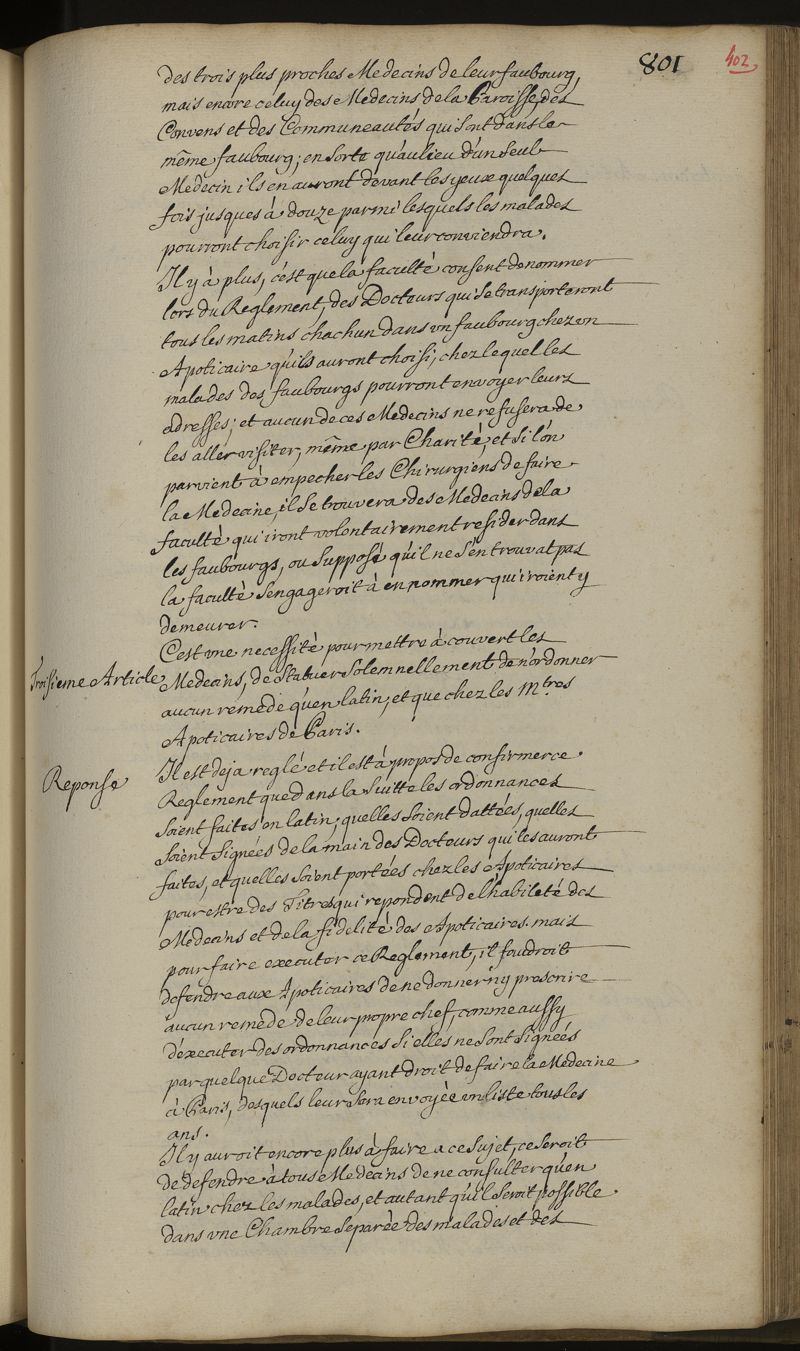 801
402
des trois plus proches Medecins de leur faubourg,
mais encore celuy des Medecins de la Paroisse, des
Convens et des Communeautés qui sont dans le
même faubourg; en sorte qu'au lieu d'un seul
Medecin ils en auront devant les yeux quelques
fois jusques à douze parmi lesquels les malades
pourront choisir celuy qui leur conviendra.
Il y à plus, c'est que la faculté consent de nommer
lors du Reglement, des Docteurs qui se transporteront
tous les matins chachun dans un faubourg chez un
Apoticaire qu'ils auront choisi, chez lequel les
malades des faubourgs pourront envoyer leurs
adresses; et aucun de ces Medecins ne refusera de
les aller visiter, même par Charité, et si l'on
parvient à empecher les Chirurgiens de faire
la Medecine, il se trouvera des Medecins de la
faculté qui iront volontairement resider dans
les faubourgs, ou supposé qu'il ne s'en trouvat pas
la faculté s'engageroit à en nommer qui iroient y
demeurer.
Troisieme Article
C'est une necessité pour mettre à couvert les
Medecins, de statuer solemnellement de n'ordonner
aucun remede qu'en latin, et que chez les Mtres
Apoticaires de Paris.
Reponse
Il est deja reglé et il est à propos de confirmer ce
Reglement que dans la suitte les ordonnances
soient faites en latin, quelles soient dattées, quelles
soient signées de la main des Docteurs qui les auront
faites, et quelles soient portées chez les Apoticaires
pour estre des Titres qui repondent de l'habileté des
Medecins et de la fidelité des Apoticaires. mais
pour faire executer ce Reglement, il faudroit
defendre aux Apoticaires de ne donner ny prescrire
aucun remede de leur propre chef, comme aussy
d'executer des ordonnances si elles ne sont signées
par quelque Docteur ayant droit de faire la Medecine
à Paris, desquels leur sera envoyée un liste tous les
ans.
Il y auroit encore plus à faire a ce sujet, ce seroit
de defendre à tous Medecins de ne consulter qu'en
latin chez les malades, et autant qu'il seroit possible
dans une Chambre separée des malades et des